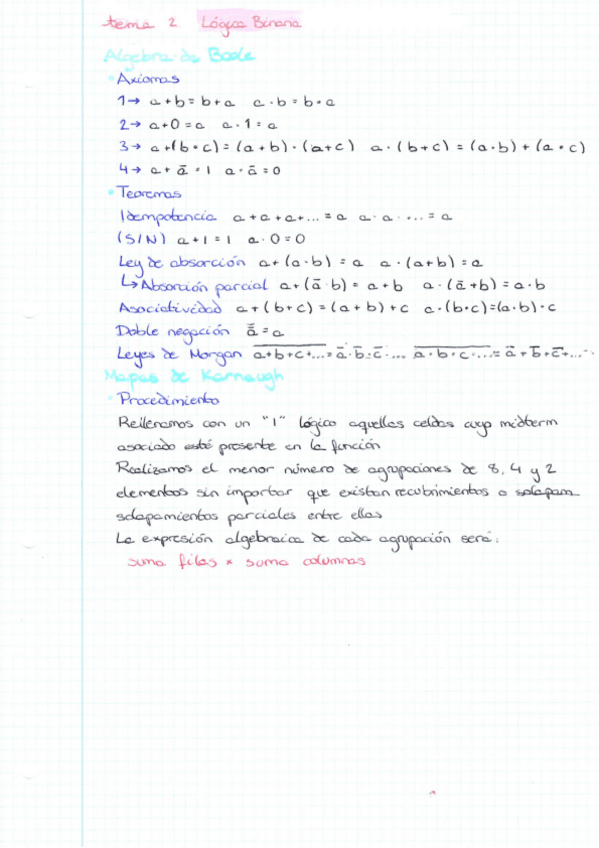 tema 2 Lógica Binaria
Algebra de Boole
• Axiomas
1→ a+b=b+a a·b=b·a
2→ a+0=a a·1=a
3→ a+(b·c)=(a+b)·(a+c) a·(b+c)=(a·b)+(a·c)
4→ a+ā=1 a·ā=0
• Teoremas
Idempotencia a+a+a+...=a a·a·...=a
(S/N) a+1=1 a·0=0
Ley de absorción a+(a·b)=a a·(a+b)=a
↳Absorción parcial a+(ā·b)=a+b a·(ā+b)=a·b
Asociatividad a+(b+c)=(a+b)+c a·(b·c)=(a·b)·c
Doble negación a̿=a
Leyes de Morgan a̅+̅b̅+̅c̅+̅.̅.̅.̅=ā·b̄·c̄·... a̅·̅b̅·̅c̅·̅.̅.̅.̅=ā+b̄+c̄+...
Mapas de Karnaugh
• Procedimiento
Rellenamos con un "1" lógico aquellas celdas cuyo midterm
asociado esté presente en la función
Realizamos el menor número de agrupaciones de 8, 4 y 2
elementos sin importar que existan recubrimientos o solapam
solapamientos parciales entre ellas
La expresión algebraica de cada agrupación será:
suma filas × suma columnas